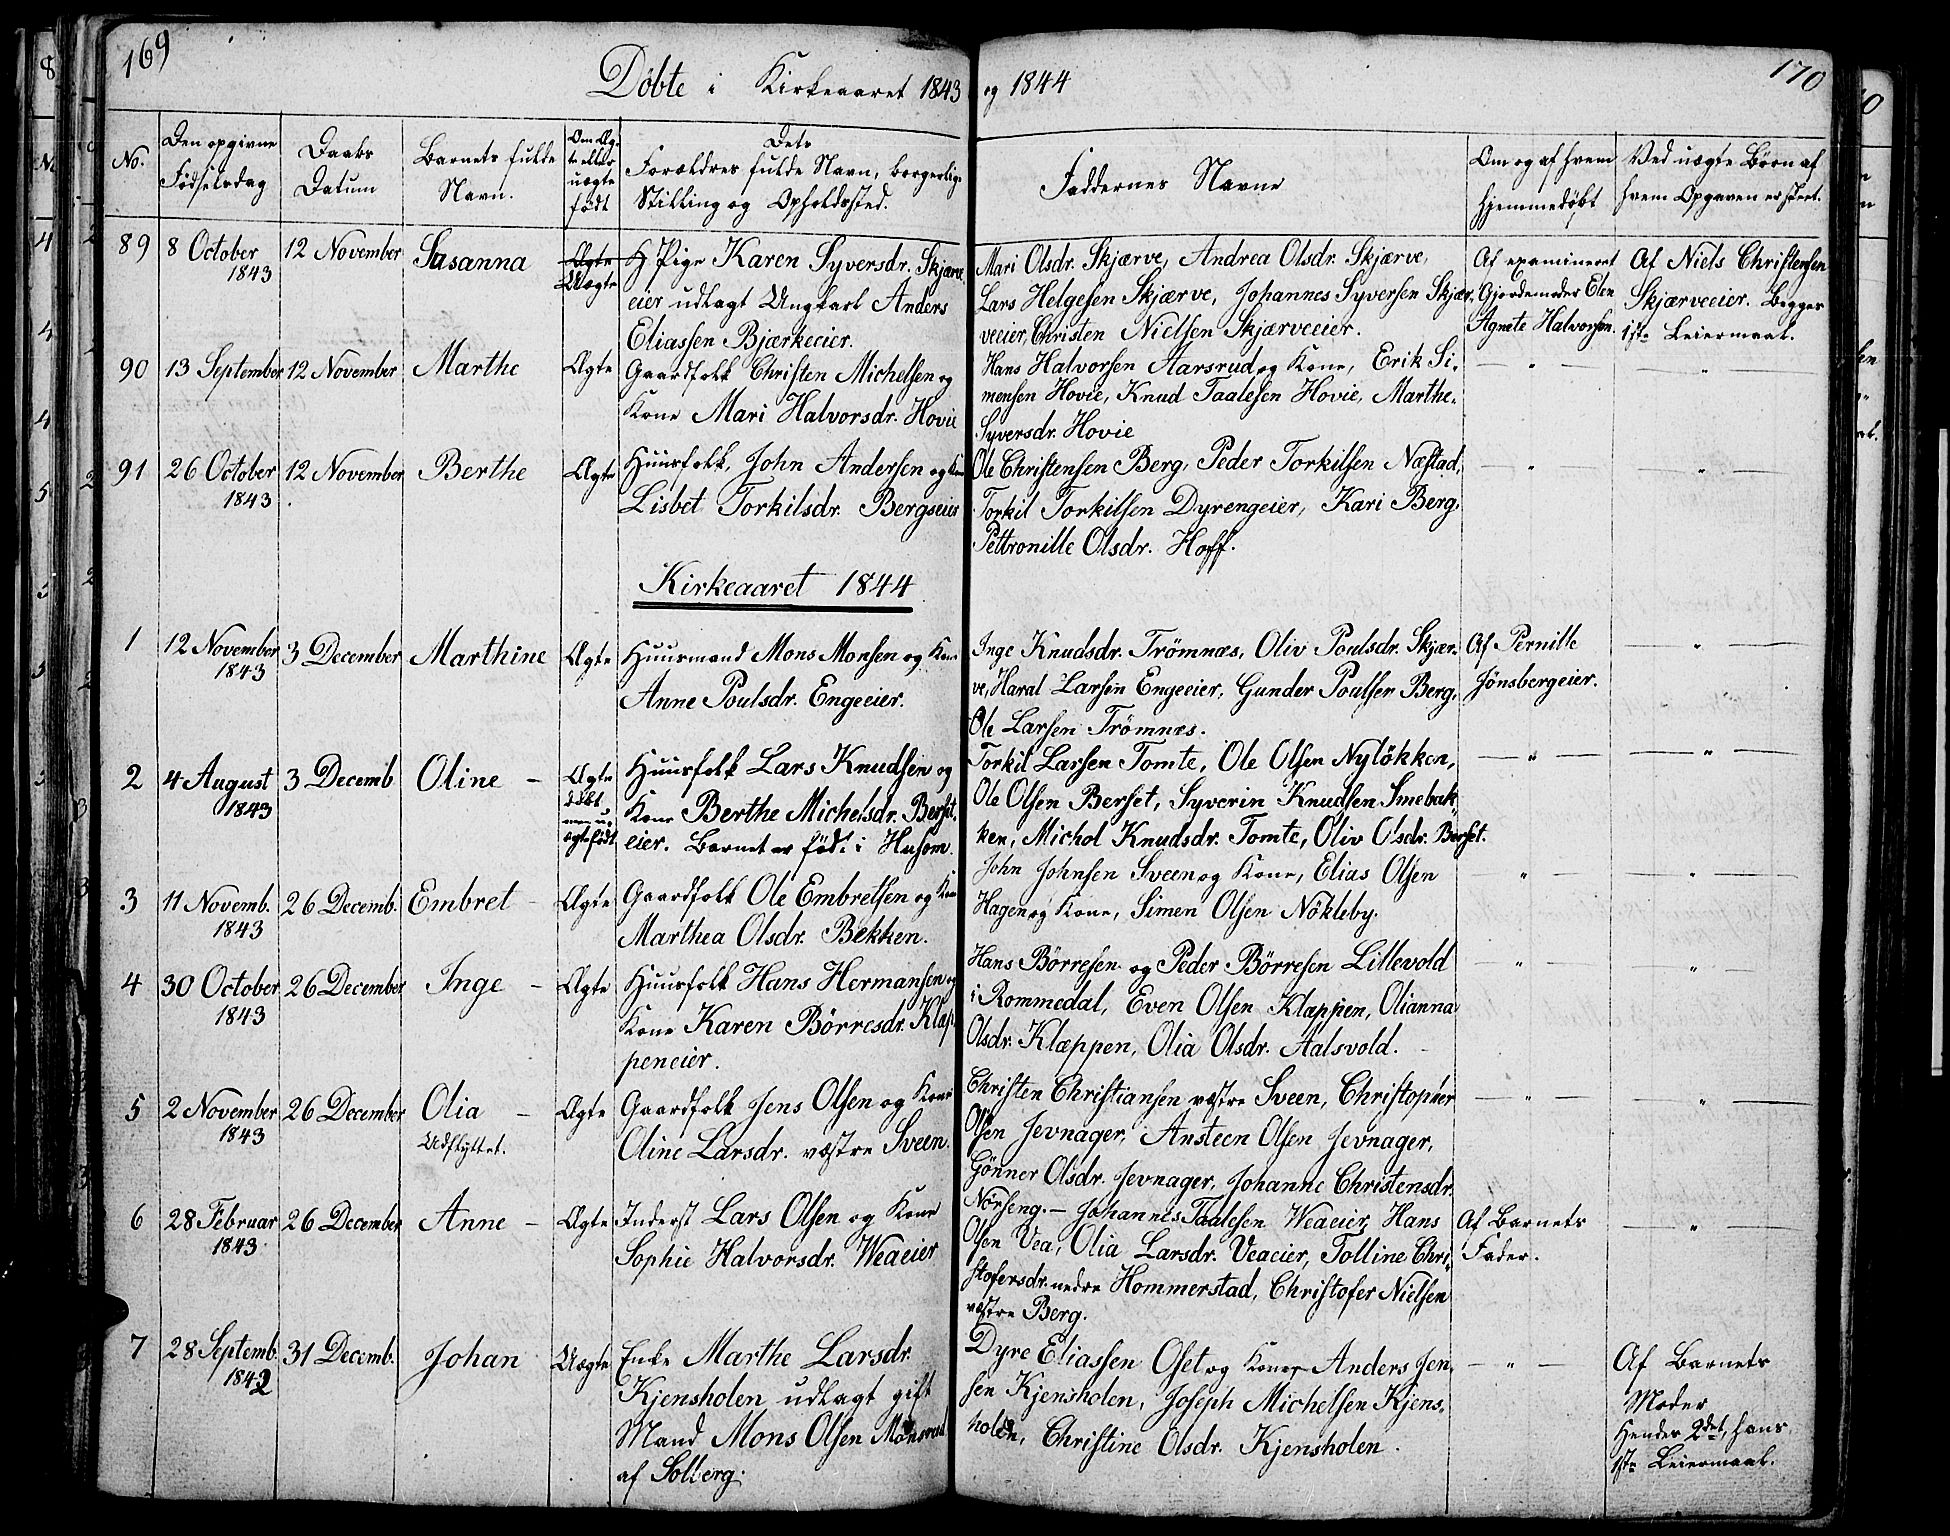 169
Döbte i Kirkeaaret 1843
No.
Den opgivne Födselsdag
Daabs Datum
Barnets fulde Navn.
Om Ægte eller uægte födt
Dets Forældres fulde Navn, borgerlige Stilling og Opholdssted.
89 8 October 1843 12 November Susanna Ægte Uægte
Pige Karen Syversdr. Skjærve
eier udlagt Ungkarl Anders
Eliassen Bjærkeeier.
90 13 September 12 November Marthe Ægte
Gaardfolk Christen Michelsen og
Kone Mari Halvorsdr. Hovie
91 26 October 1843 12 November Berthe Ægte
Huusfolk, John Andersen og Kone
Lisbet Torkilsdr. Bergseier
Kirkeaaret 1844
1 12 November 1843 3 December Marthine Ægte
Huusmand Mons Monsen og Kone
Anne Poulsdr. Engeeier.
2 4 August 1843 3 Decemb Oline – Ægte
Huusfolk Lars Knudsen og
Kone Berthe Michelsdr. Berset
eier. Barnet er födt i Husom.
3 11 Novemb. 1843 26 Decemb. Embret – Ægte
Gaardfolk Ole Embretsen og Kone
Marthea Olsdr. Bekken.
4 30 October 1843 26 December Inge – Ægte
Huusfolk Hans Hermansen og
Kone Karen Börresdr. Klæp
peneier.
5 2 November 1843 26 December Olia – Udflyttet. Ægte
Gaardfolk Jens Olsen og Kone
Oline Larsdr. vestre Sveen.
6 28 Februar 1843 26 December Anne – Ægte
Inderst Lars Olsen og Kone
Sophie Halvorsdr. Weaeier
7 28 Septemb. 1842 31 Decemb. Johan Uægte
Enke Marthe Larsdr.
Kjensholen udlagt gift
Mand Mons Olsen
af Solberg.
og 1844
170
Faddernes Navne
Om og af hvem hjemmedöbt
Ved uægte Börn af hvem Opgaven er skeet.
Mari Olsdr. Skjærve, Andrea Olsdr. Skjærve,
Lars Helgesen Skjærve, Johannes Syversen Skjær-
veeier, Christen Nielsen Skjærveeier.
Af examineret
Gjordemoder Elen
Agnete Halvorsen.
Af Niels Christensen
Skjærveeier. Begges
1ste Leiermaal.
Hans Halvorsen Aarsrud og Kone, Erik Si-
mensen Hovie, Knud Taalesen Hovie, Marthe
Syversdr. Hovie
Ole Christensen Berg, Peder Torkilsen Næstad,
Torkil Torkilsen Dyrengeier, Kari Berg,
Pettronille Olsdr. Hoff.
Inge Knudsdr. Trömnæs, Oliv Poulsdr. Skjær-
ve, Haral Larsen Engeeier, Gunder Poulsen Berg,
Ole Larsen Trömnes.
Af Pernille
Jönsbergeier.
Torkil Larsen Tomte, Ole Olsen Nylökken,
Ole Olsen Berset, Syverin Knudsen Smebak
ken, Michol Knudsdr. Tomte, Oliv Olsdr. Berset.
John Johnsen Sveen og Kone, Elias Olsen
Hagen og Kone, Simen Olsen Nökleby.
Hans Börresen og Peder Börresen Lillevold
i Rommedal, Even Olsen Klæppen, Olianna
Olsdr. Klæppen, Olia Olsdr. Aalsvold.
Christen Christiansen vestre Sveen, Christopher
Olsen Jevnager, Ansteen Olsen Jevnager,
Gönner Olsdr. Jevnager, Johanne Christensdr.
Nörseng. – Johannes Taalesen Weaeier, Hans
Olsen Vea, Olia Larsdr. Veaeier, Tolline Chri-
stofersdr. nedre Hommerstad, Christofer Nielsen
vestre Berg.
Af Barnets
Fader.
Dyre Eliassen Oset og Kone, Anders Jen-
sen Kjensholen, Joseph Michelsen Kjens-
holen, Christine Olsdr. Kjensholen.
Af Barnets
Moder
Hendes 2det, hans
1ste Leiermaal.